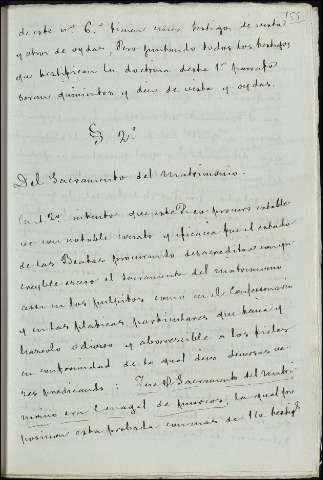 155
deste nº 6.º tienen cinco testigos de vista
y otros de oydas. Pero juntando todos los testigos
que testifican la doctrina deste 1º parrafo
seran quinientos y dies de vista y oydas.
§ 2º
Del Sacramento del Matrimonio.
En el 2º intento que este P. procuro estable
ce con notable conato y eficacia fue el estado
de las Beatas procurando desacreditar con yn
creyble exceso el Sacramento del matrimonio
assi en los pulpitos como en el Confessionario
y en las platicas particulares que hacia y
hazerlo odioso y aborrescible a los fieles
en conformidad de lo qual dixo diversas ve
zes predicando: Que el Sacramento del Matri
monio era Cenagal de puercos; la qual pro
posicion esta probada con mas de 110 testigˢ